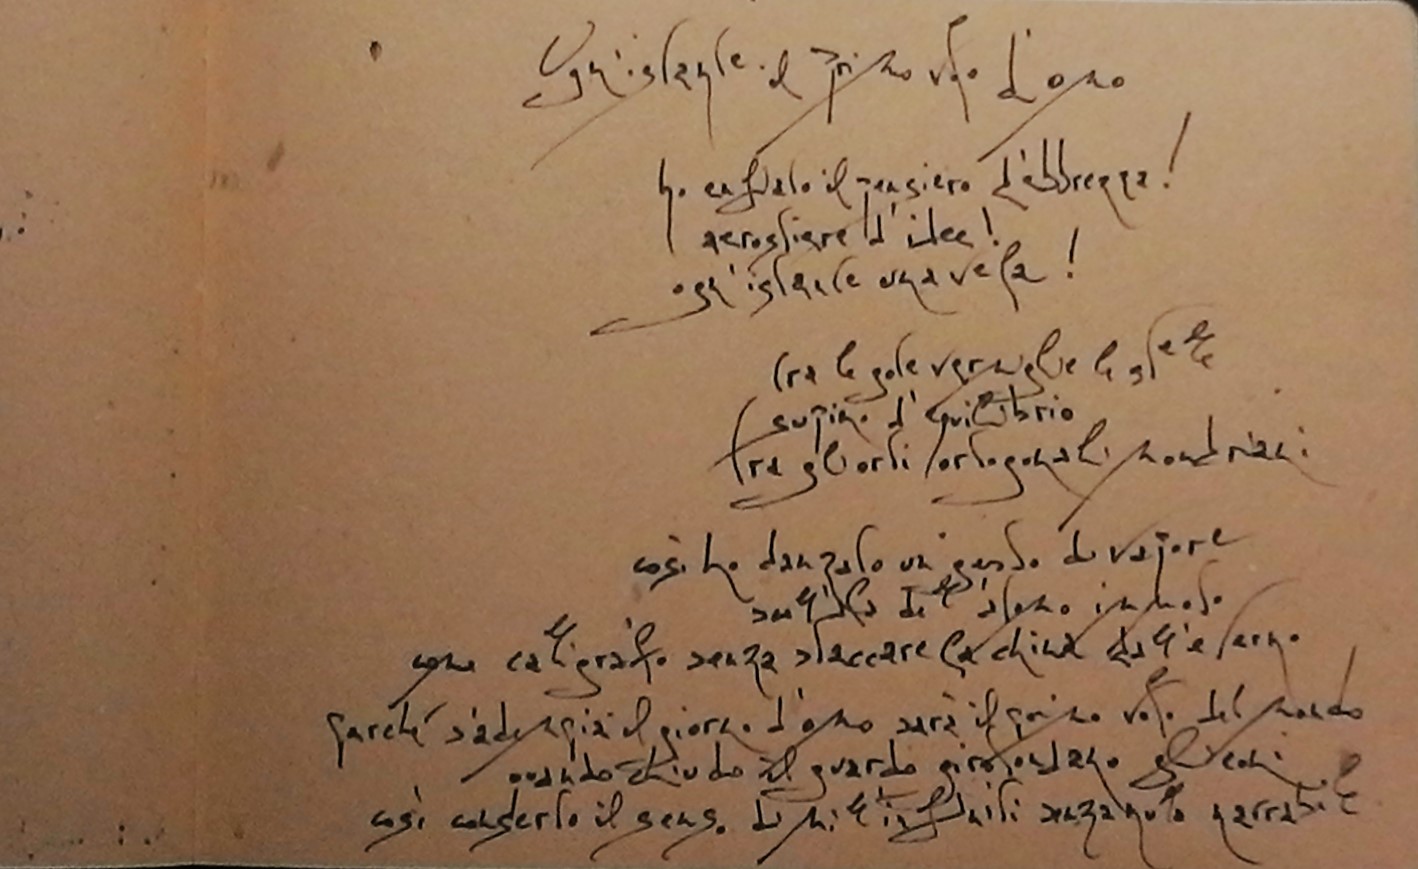 Ogn'istante il primo volo d'omo
ho enfiato il pensiero d'ebbrezza!
aerostiere d'idee!
ogn'istante una vela!
tra le gole vermiglie le
supino d'equilibrio
tra gli orti ortogonali mondriani
così ho danzato un gesto di vapore
sull'ala dell'atomo immoto
come calligrafo senza staccare la china dall'eterno
perché s'adempia il giorno d'omo sarà il primo volo del mondo
quando chiudo il guardo girotondano gli eoni
così conserto il senso di mill'infiniti senza nulla narrabile